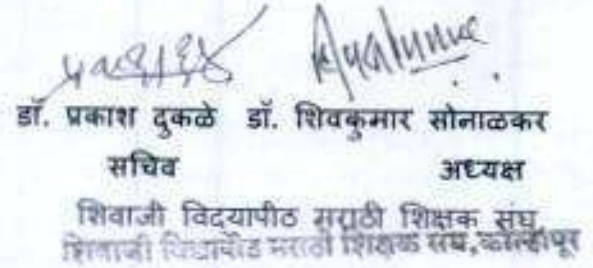 डॉ. प्रकाश दुकळे डॉ. शिवकुमार सोनाळकर
सचिव अध्यक्ष
शिवाजी विदयापीठ मराठी शिक्षक संघ
शिवाजी विद्यापीठ मराठी शिक्षक संघ, कोल्हापूर